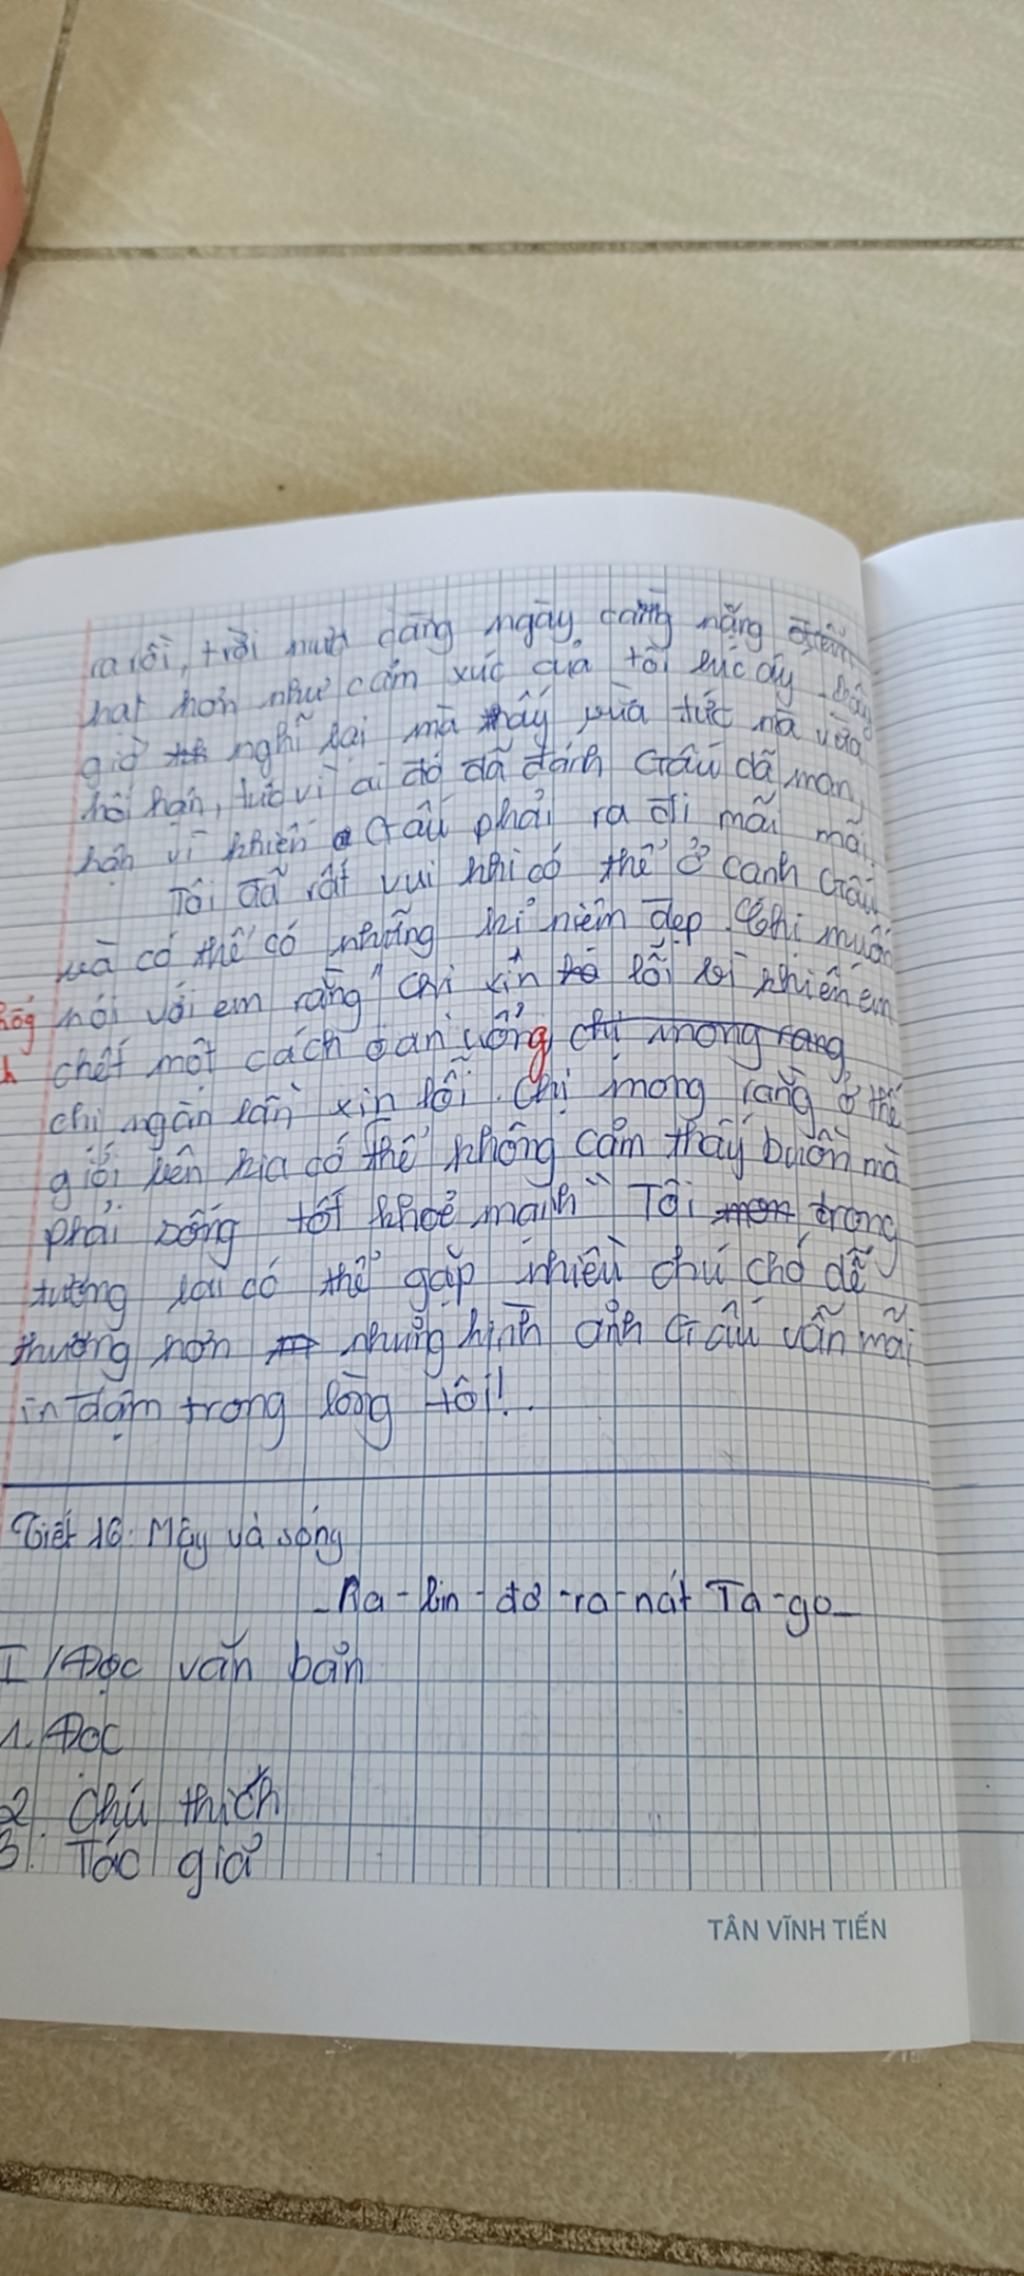 ra rồi, trời mưa càng ngày càng nặng
hạt hơn như cảm xúc của tôi lúc ấy. Bây
giờ nghĩ lại mà thấy vừa tức mà vừa
hối hận, tức vì ai đó đã đánh Gấu dã man,
hận vì khiến Gấu phải ra đi mãi mãi.
Tôi đã rất vui khi có thể ở cạnh Gấu
và có thể có những kỉ niệm đẹp. muốn
nói với em rằng "Chị xin lỗi vì khiến em
chết một cách oan uổng chị mong rằng
chị ngàn lần xin lỗi. Chị mong rằng ở thế
giới bên kia có thể không cảm thấy buồn mà
phải sống tốt khoẻ mạnh" Tôi trong
tương lai có thể gặp nhiều chú chó dễ
thương hơn nhưng hình ảnh Gấu vẫn mãi
in đậm trong lòng tôi!.
Tiết 16: Mây và sóng
- Ra-bin-đơ-ra-nát Ta-go-
I/Đọc văn bản
1. Đọc
2. Chú thích
3. Tác giả
TÂN VĨNH TIẾN